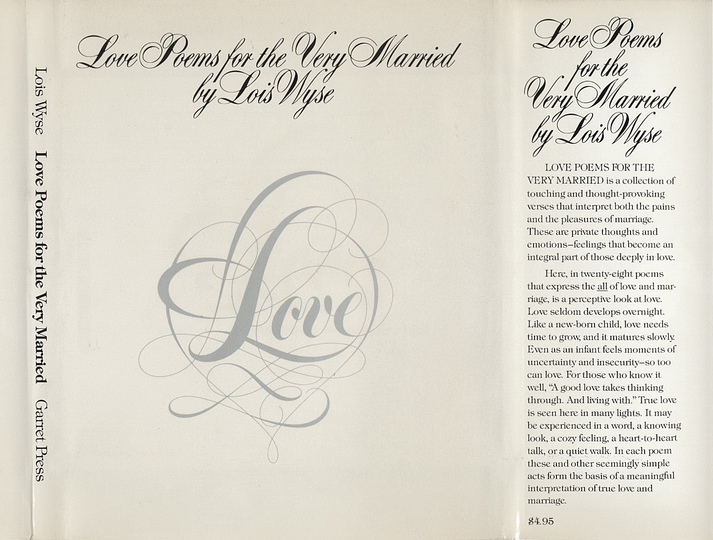 Lois Wyse Love Poems for the Very Married Garret Press
Love Poems for the Very Married
by Lois Wyse
Love
Love Poems
for the
Very Married
by Lois Wyse
LOVE POEMS FOR THE
VERY MARRIED is a collection of
touching and thought-provoking
verses that interpret both the pains
and the pleasures of marriage.
These are private thoughts and
emotions—feelings that become an
integral part of those deeply in love.
Here, in twenty-eight poems
that express the all of love and mar-
riage, is a perceptive look at love.
Love seldom develops overnight.
Like a new-born child, love needs
time to grow, and it matures slowly.
Even as an infant feels moments of
uncertainty and insecurity—so too
can love. For those who know it
well, “A good love takes thinking
through. And living with.” True love
is seen here in many lights. It may
be experienced in a word, a knowing
look, a cozy feeling, a heart-to-heart
talk, or a quiet walk. In each poem
these and other seemingly simple
acts form the basis of a meaningful
interpretation of true love and
marriage.
$4.95